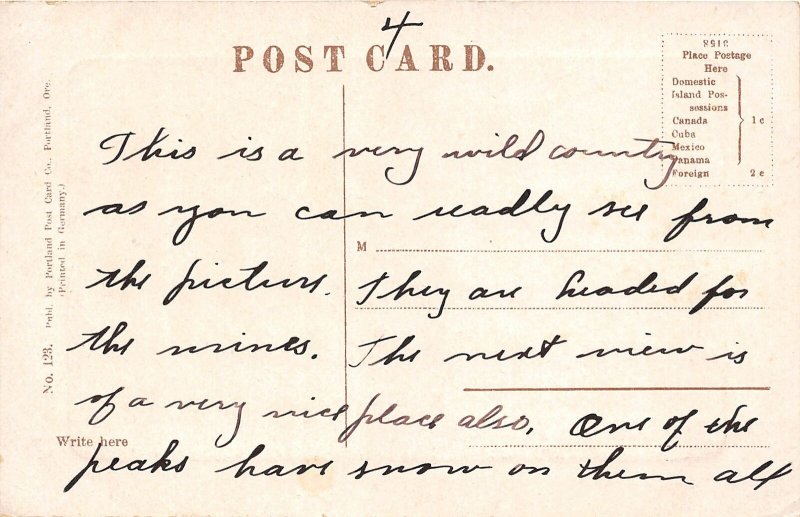 4
POST CARD.
8918
Place Postage
Here
Domestic
Island Pos-
sessions
Canada
Cuba
Mexico
Panama
Foreign
1 c
2 c
No. 123. Publ. by Portland Post Card Co., Portland, Ore.
(Printed in Germany.)
This is a very wild country
as you can readly see from
M
the picture. They are headed for
the mines. The next view is
of a very nice place also. One of the
Write here
peaks have snow on them all